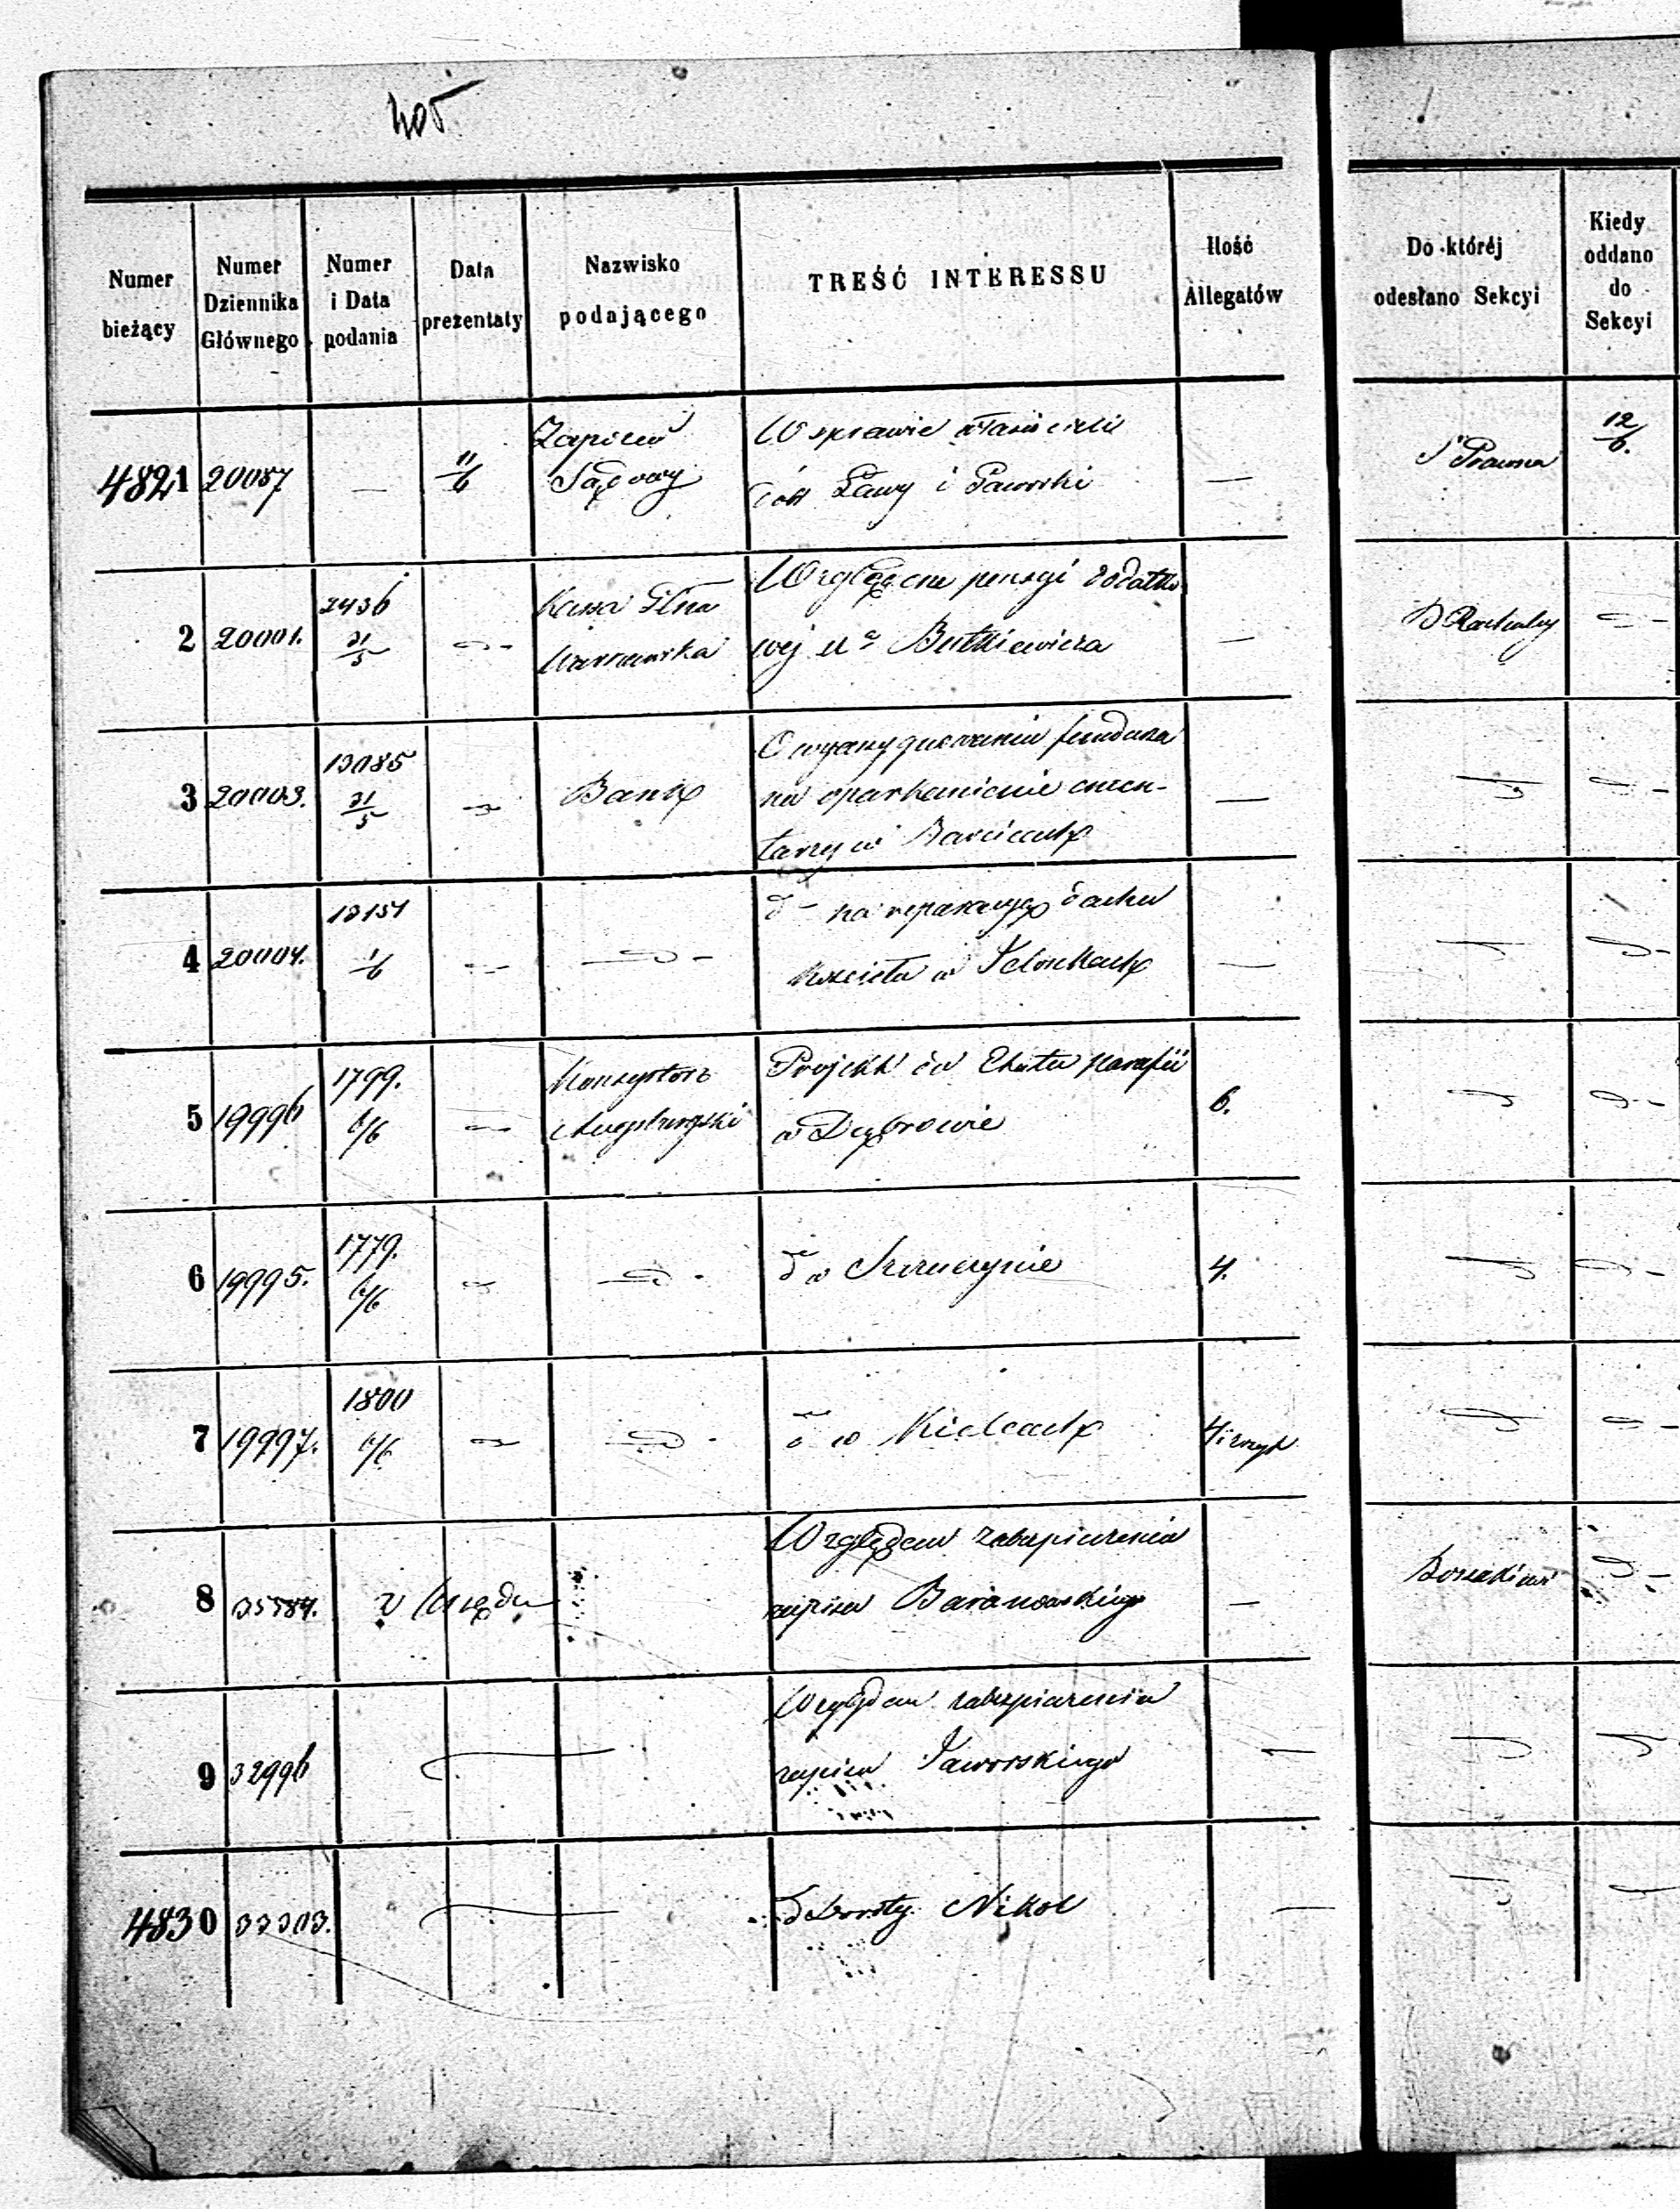 405
Numer bieżący
Numer Dziennika Głównego
Numer i Data podania
Data prezentaty
Nazwisko podającego
TREŚĆ INTERESSU
Ilość Allegatów
Do któréj odesłano Sekcyi
Kiedy oddano do Sekcyi
4821 20087 — 11/6 Zapiew Sądowy
W sprawie właścicieli
dóbr Ławy i Paworski —
S Prawna 12/6.
2 20001. 2436 31/5 Kassa Główna Warszawska
Względem pensyi dodatko
wej Butkiewicza —
3 20003. 13085 31/5 Bank
O wyasygnowaniu fundusza
na oparkanienie cmen-
tarzy w Barcicach —
4 20004. 13151 1/6
do na reparacyę dachu
kościoła w Jelonkach —
5 19996 1799. 6/6 Konsystorz Augsburgski
Projekt do Etatu parafii
w Dąbrowie 6.
6 19995. 1779. 6/6
do w 4.
7 19997. 1800 6/6
do w Kielcach 4
8 35584. z Urzędu
Względem zabezpieczenia
zapisu Baranowskiego —
9 32996
Względem zabezpieczenia
zapisu Jaworskiego —
4830 33303.
Nikol —